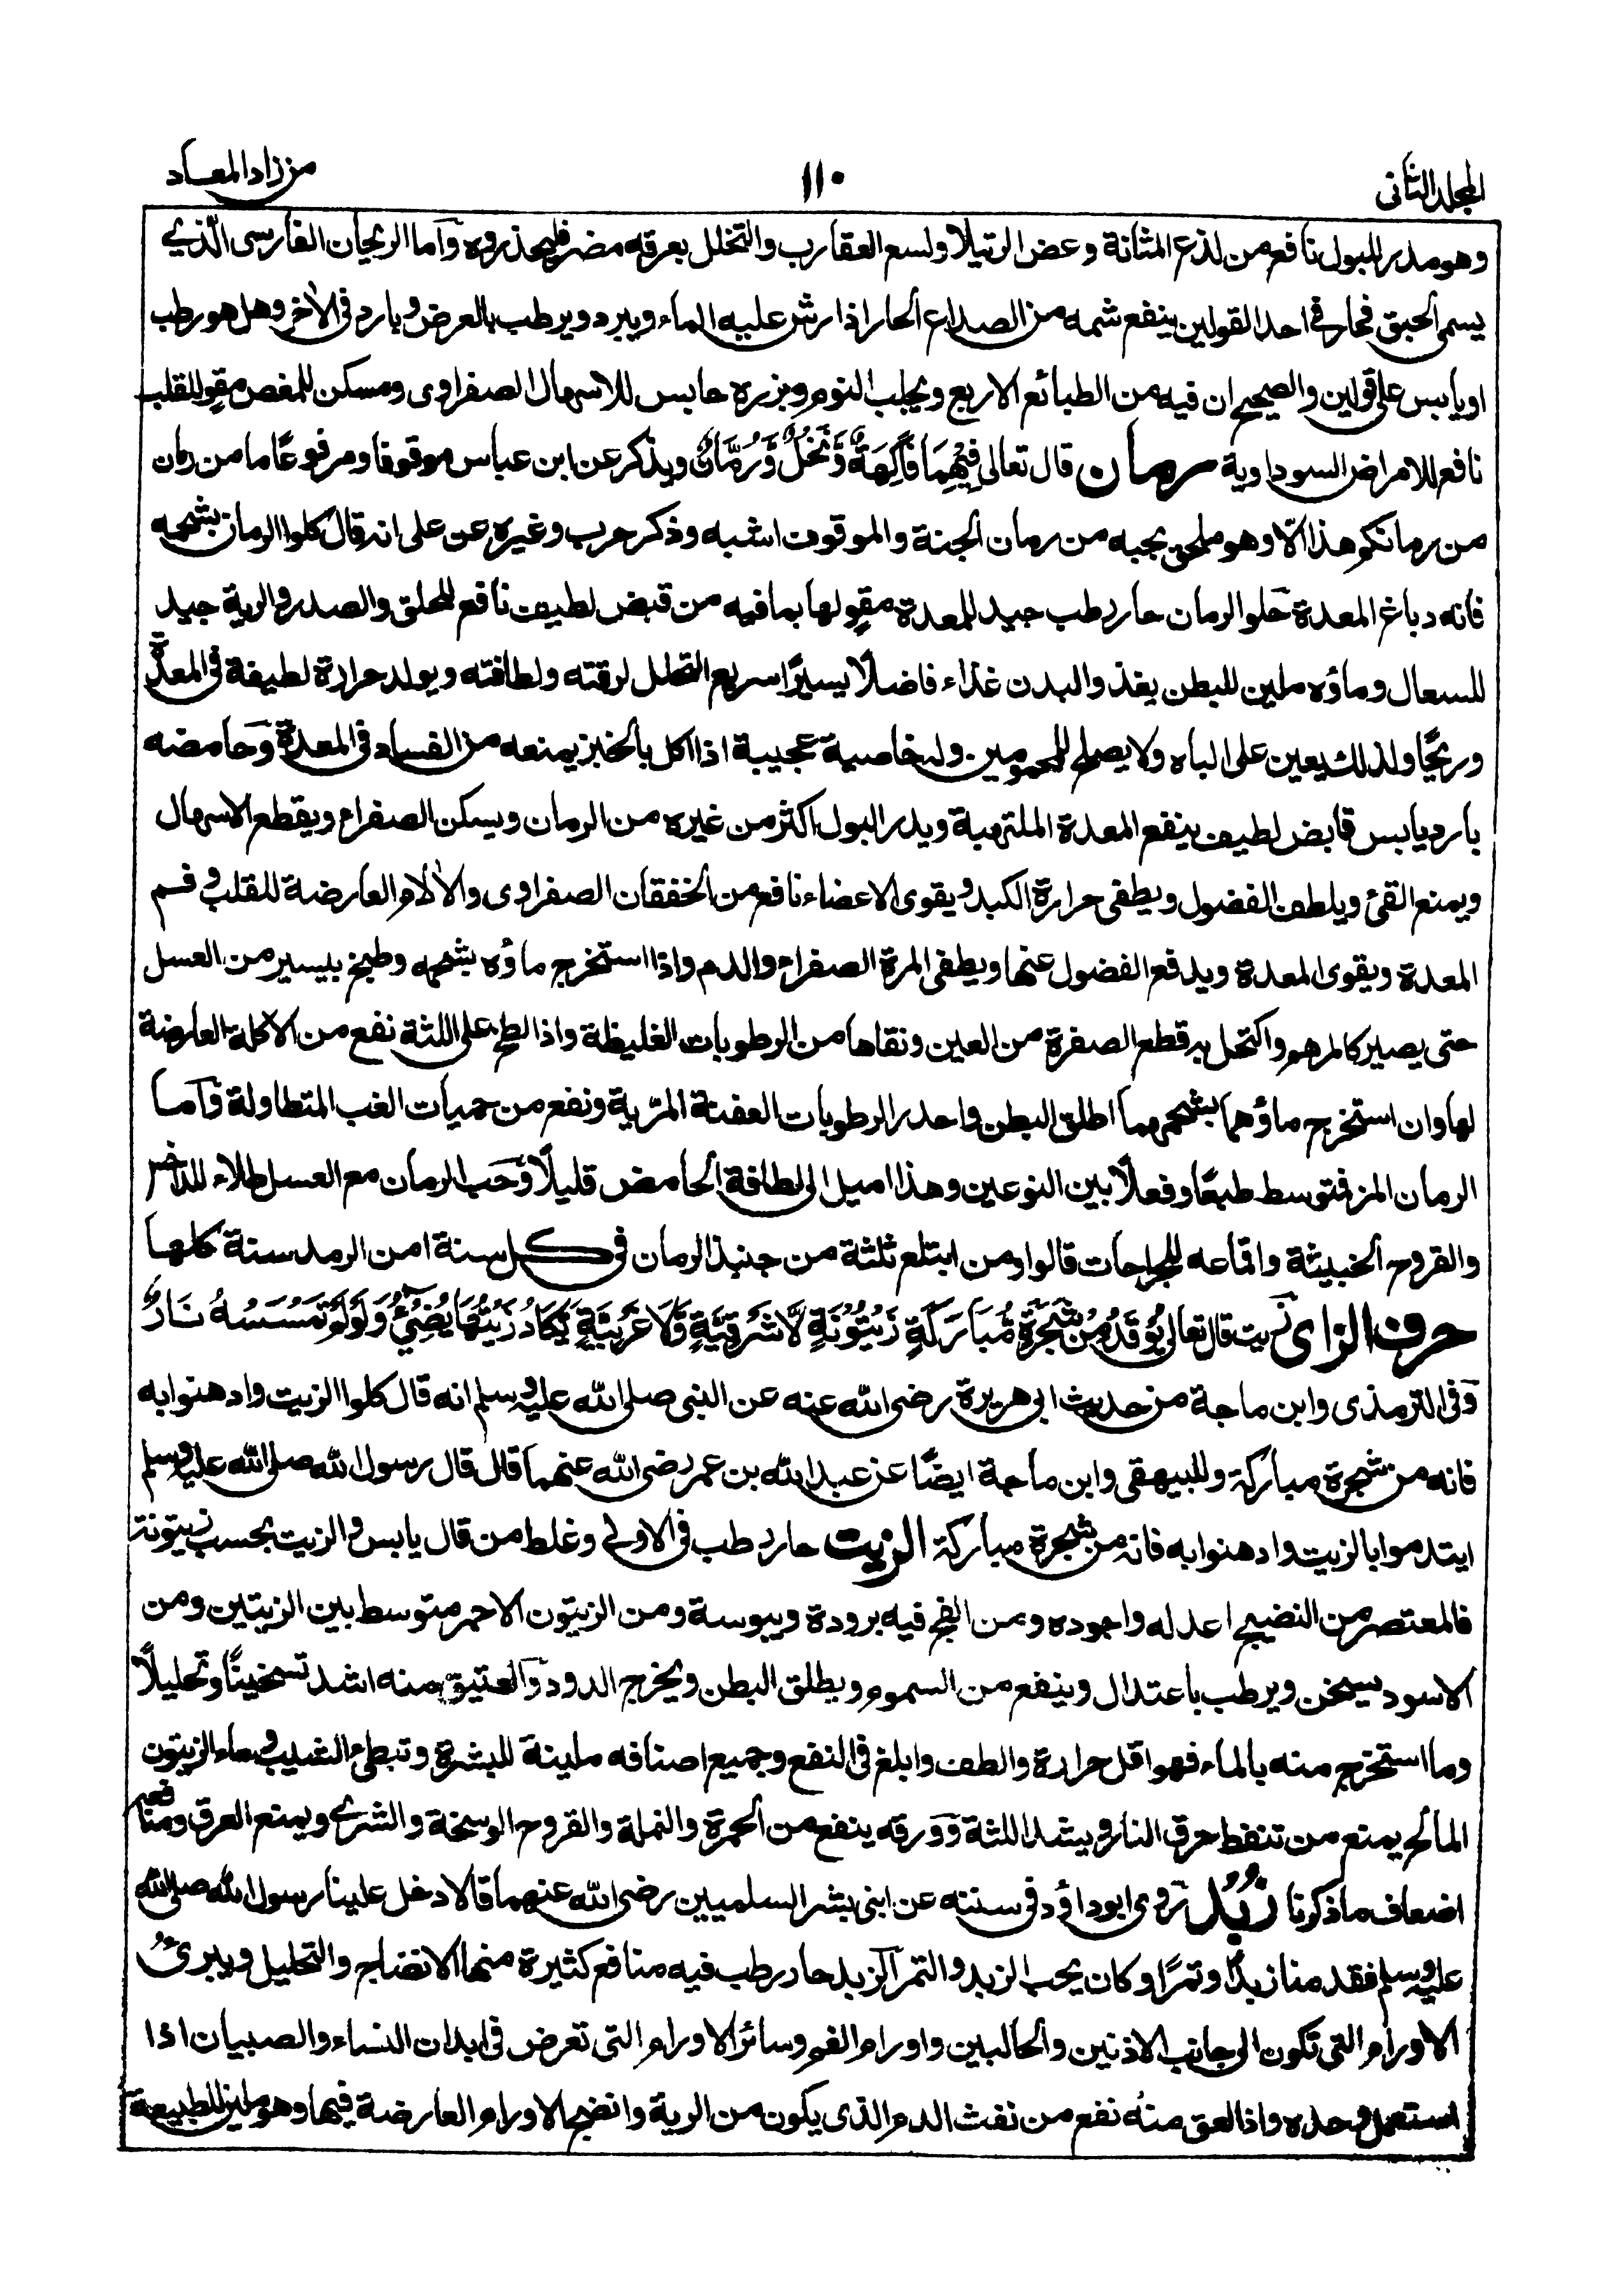 المجلد الثانى
١١٠
من زاد المعاد
وهو مدر للبول نافع من لذع المثانة وعض الرتيلا ولسع العقارب والتخلل بعرقه مضر فليحذروه وآما الريحان الفارسى الذي
يسمى الحبق فحار فى احد القولين ينفع شمه من الصداع الحار اذا رش عليه الماء ويبرد ويرطب بالعرض وبارد فى الاٰخر وهل هو رطب
او يابس على قولين والصحيح ان فيه من الطبائع الاربع ويجلب النوم وبزره حابس للاسهال الصفراوى ومسكن للمغص مقوٍ للقلب
نافع للامراض السوداوية رمان قال تعالى فِيْهِمَا فَاكِهَةٌ وَّنَخْلٌ وَّرُمَّانٌ ويذكر عن ابن عباس موقوفا ومرفوعًا ما من رمان
من رمانكم هذا الّا وهو ملحق بحبه من رمان الجنة والموقوف اشبه وذكر حرب وغيره عن على انه قال كلوا الرمان بشحمه
فانه دباغ المعدة حَلو الرمان حار رطب جيد للمعدة مقوٍ لها بما فيه من قبض لطيف نافع للحلق والصدر والرية جيد
للسعال وماؤه ملين للبطن يغذ والبدن غذاء فاضلًا يسيرًا سريع التحلل لرقته ولطافته ويولد حرارة لطيفة فى المعدة
وريحًا ولذلك يعين على الباه ولا يصلح للمحمومين وله خاصية عجيبة اذا اكل بالخبز يمنعه من الفساد فى المعدة وَحامضه
بارد يابس قابض لطيف ينفع المعدة الملتهبة ويدر البول اكثر من غيره من الرمان ويسكن الصفراء ويقطع الاسهال
ويمنع القئ ويلطف الفضول ويطفى حرارة الكبد ويقوى الاعضاء نافع من الخفقان الصفراوى والاٰلام العارضة للقلب وفم
المعدة ويقوى المعدة ويدفع الفضول عنها ويطفى المرة الصفراء والدم واذا استخرج ماؤه بشحمه وطبخ بيسير من العسل
حتى يصير كالمرهم واكتحل به قطع الصفرة من العين ونقاها من الرطوبات الغليظة واذا لطخ على اللثة نفع من الاكلة العارضة
لها وان استخرج ماؤهما بشحمهما اطلق البطن واحدر الرطوبات العفنة المرّية ونفع من حميات الغب المتطاولة وَآما
الرمان المز فمتوسط طبعًا وفعلًا بين النوعين وهذا اميل الى لطافة الحامض قليلًا وَحب الرمان مع العسل طلاء للداخس
والقروح الخبيثة واقماعه للجراحات قالوا ومن ابتلع ثلثة من جنبذ الرمان فى كل سنة امن الرمد سنة كلها
حرف الزاى زَيت قال تعالى يُّوْقَدُ مِنْ شَجَرَةٍ مُّبَارَكَةٍ زَيْتُوْنَةٍ لَّا شَرْقِيَّةٍ وَّلَا غَرْبِيَّةٍ يَّكَادُ زَيْتُهَا يُضِيْٓءُ وَلَوْ لَمْ تَمْسَسْهُ نَارٌ
وَفى الترمذى وابن ماجة من حديث ابى هريرة رضى الله عنه عن النبى صلى الله عليه وسلم انه قال كلوا الزيت وادهنوا به
فانه من شجرة مباركة وللبيهقى وابن ماجة ايضًا عن عبد الله بن عمر رضى الله عنهما قال قال رسول الله صلى الله عليه وسلم
ايتدموا بالزيت وادهنوا به فانه من شجرة مباركة الزيت حار رطب فى الاولى وغلط من قال يابس والزيت بحسب زيتونته
فالمعتصر من النضيج اعدله واجوده ومن الفج فيه برودة ويبوسة ومن الزيتون الاحمر متوسط بين الزيتين ومن
الاسود يسخن ويرطب باعتدال وينفع من السموم ويطلق البطن ويخرج الدود وَالعتيق منه اشد تسخينًا وتحليلًا
وما استخرج منه بالماء فهو اقل حرارة والطف وابلغ فى النفع وجميع اصنافه ملينة للبشرة وتبطئ الشيب وماء الزيتون
المالح يمنع من تنفط حرق النار ويشد اللثة وَورقه ينفع من الحمرة والنملة والقروح الوسخة والشرى ويمنع العرق ومنافعه
اضعاف ما ذكرنا زُبُد رَوى ابو داؤد فى سننه عن ابنى بشر السلميين رضى الله عنهما قالا دخل علينا رسول الله صلى الله
عليه وسلم فقدمنا زبدًا وتمرًا وكان يحب الزبد والتمر آلزبد حار رطب فيه منافع كثيرة منها الانضاج والتحليل ويبرئ
الاورام التى تكون الى جانب الاذنين والحالبين واورام الفم وسائر الاورام التى تعرض فى ابدان النساء والصبيان اذا
استعمل وحده واذا لعق منه نفع من نفث الدم الذى يكون من الرية وانضج الاورام العارضة فيها وهو ملين للطبيعة